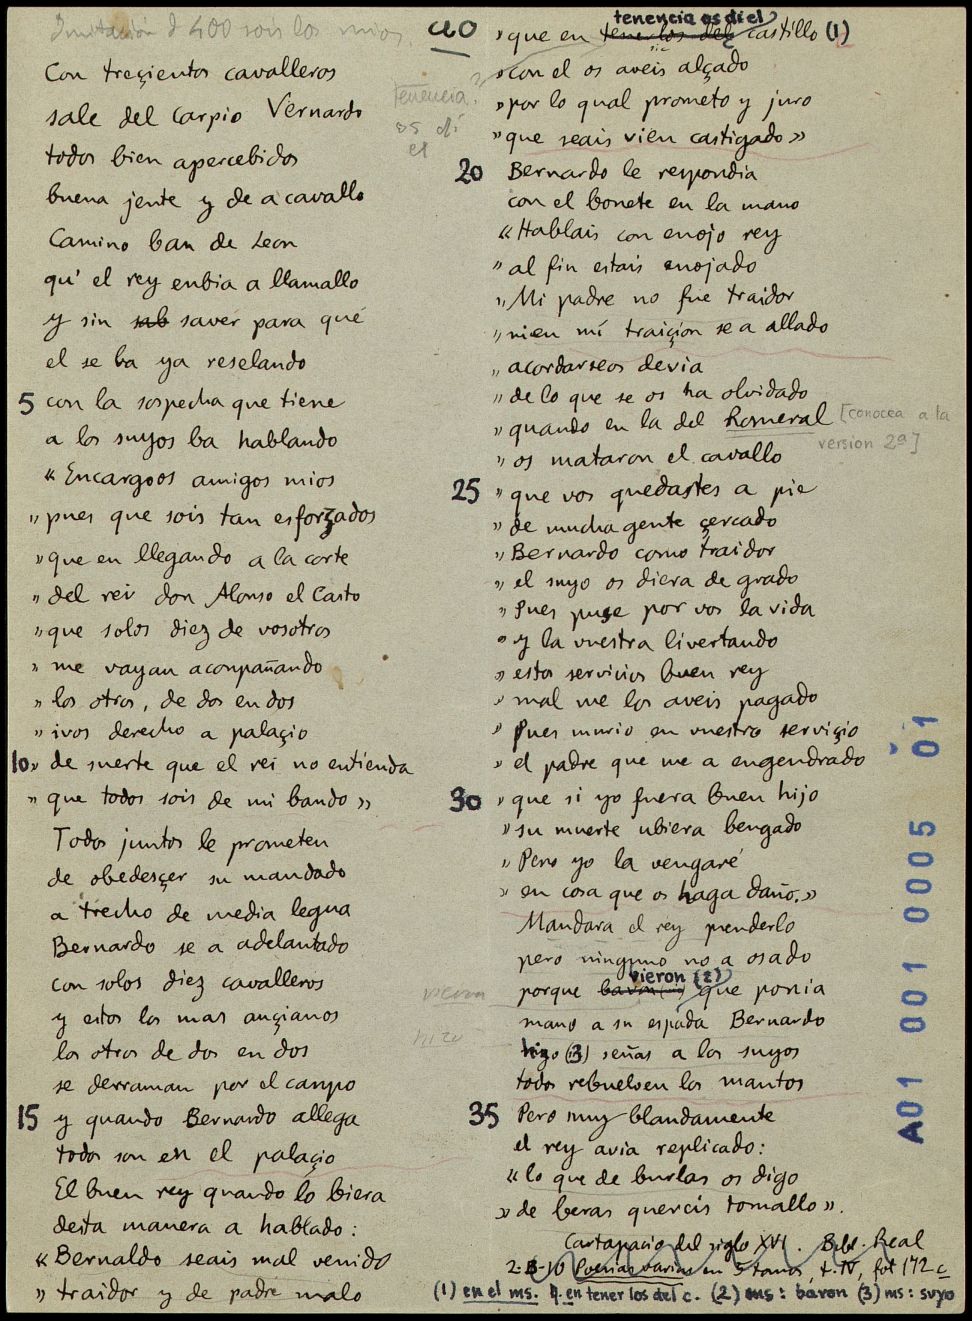 Imitación d 400 sois los mios.
Con treçientos cavalleros
sale del carpio Vernardo
todos bien apercebidos
buena jente y de a cavallo
Camino ban de Leon
qu' el rey enbia a llamallo
y sin sab saver para qué
el se ba ya reselando
5 con la sospecha que tiene
a los suyos ba hablando
« Encargoos amigos mios
» pues que sois tan esforzados
» que en llegando a la corte
» del rei don Alonso el Casto
» que solos diez de vosotros
» me vayan aconpañando
» los otros, de dos en dos
» ivos derecho a palaçio
10 » de suerte que el rei no entienda
» que todos sois de mi bando »
Todos juntos le prometen
de obedesçer su mandado
a trecho de media legua
Bernardo se a adelantado
con solos diez cavalleros
y estos los mas ançianos
los otros de dos en dos
se derraman por el canpo
15 y quando Bernardo allega
todos son en el palaçio
El buen rey quando lo biera
desta manera a hablado:
« Bernaldo seais mal venido
» traidor y de padre malo
tenencia?
os di
el
vieron
hizo
40
tenencia os di el
» que en tener los del castillo (1)
sic
» con el os aveis alçado
» por lo qual prometo y juro
» que seais vien castigado »
20 Bernardo le respondia
con el bonete en la mano
« Hablais con enojo rey
» al fin estais enojado
» Mi padre no fue traidor
» ni en mí traiçion se a allado
» acordarseos devia
» de lo que se os ha olvidado
» quando en la del Romeral [conocea a la
version 2ª]
» os mataron el cavallo
25 » que vos quedastes a pie
» de mucha gente çercado
» Bernardo como traidor
» el suyo os diera de grado
» Pues puse por vos la vida
» y la vuestra livertando
» estos servicios buen rey
» mal me los aveis pagado
» Pues murio en vuestro serviçio
» el padre que me a engendrado
30 » que si yo fuera buen hijo
» su muerte ubiera bengado
» Pero yo la vengaré
» en cosa que os haga daño. »
Mandara el rey prenderlo
pero ninguno no a osado
vieron (2)
porque baron (sic) que ponia
mano a su espada Bernardo
hizo (3) señas a los suyos
todos rebuelven los mantos
35 Pero muy blandamente
el rey avia replicado:
« lo que de burlas os digo
» de beras quereis tomallo ».
Cartapacio del siglo XVI. Bibl. Real
2-B-10 Poesias varias en 5 tomos, t. IV, fol 172 c
(1) en el ms. q. en tener los del c. (2) ms: baron (3) ms: suyo
A01 001 0005 01